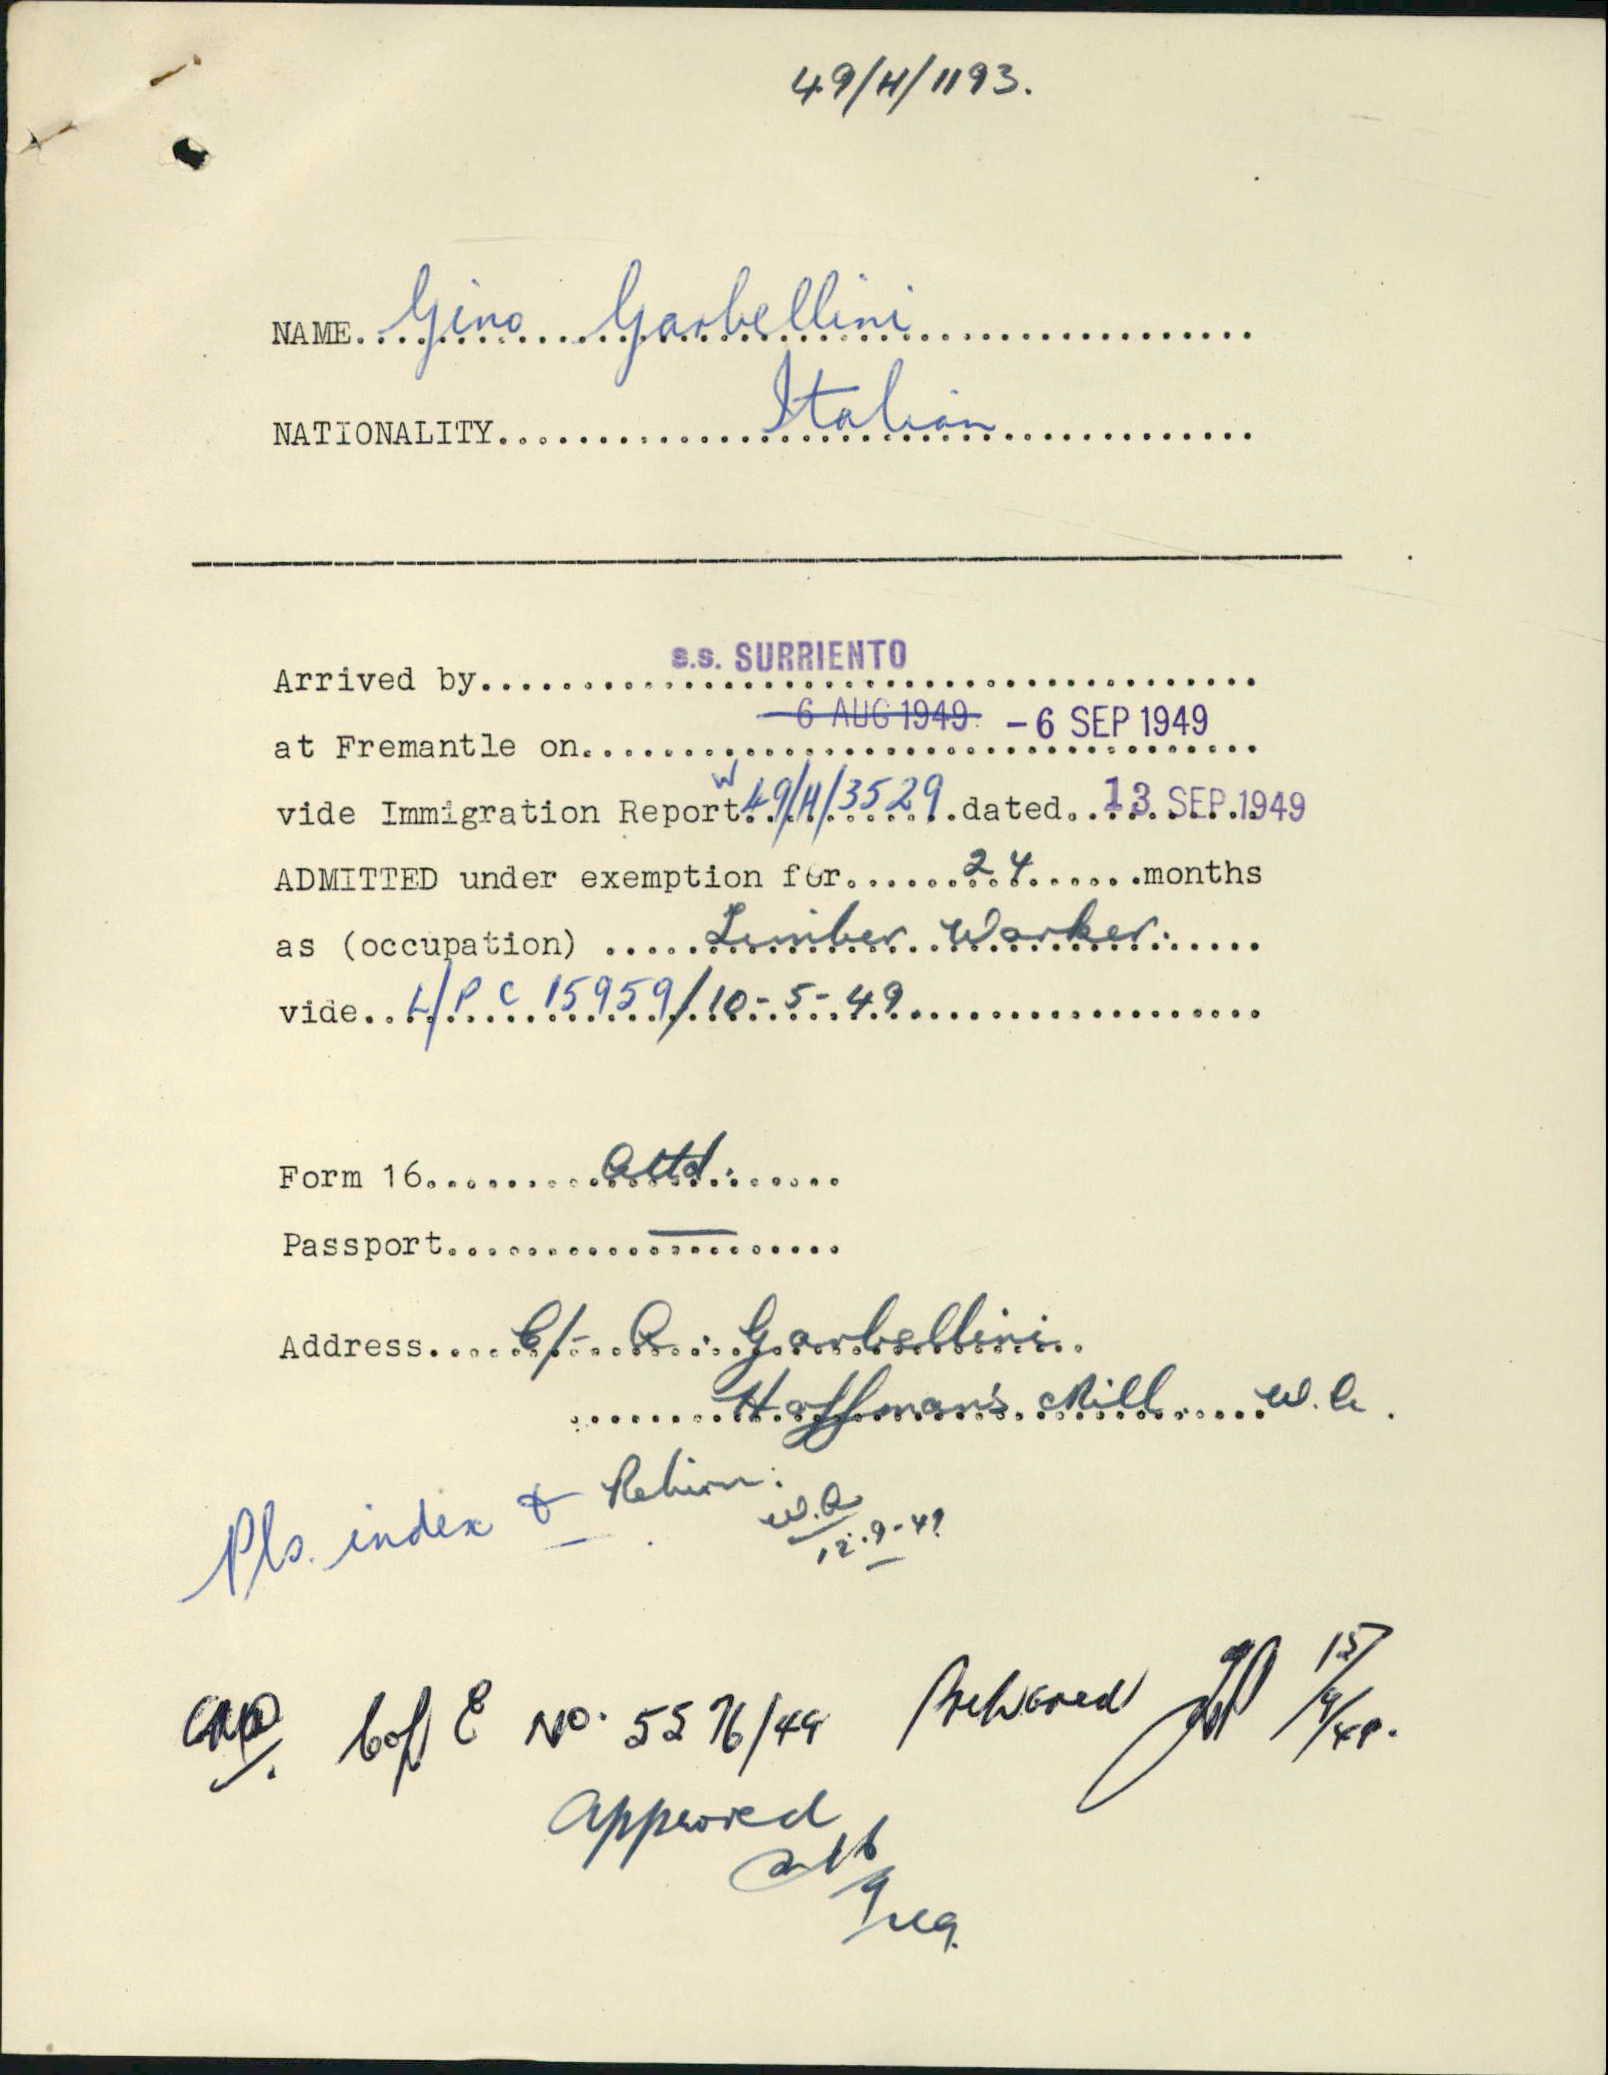 49/H/1193.
NAME. Gino Garbellini
NATIONALITY. Italian
Arrived by. s.s. SURRIENTO
6 AUG 1949 - 6 SEP 1949
at Fremantle on.
vide Immigration Report W49/H/3529 dated. 13 SEP. 1949
ADMITTED under exemption for. 24 months
as (occupation) Timber Worker.
vide. L/P C 15959/10-5-49
Form 16. Attd.
Passport. —
Address. C/- A. Garbellini.
Hoffman's Mill W.A.
Pls. index & Return.
12.9-49
C of E No. 5576/49
15/9/49.
Approved
16/9/49.